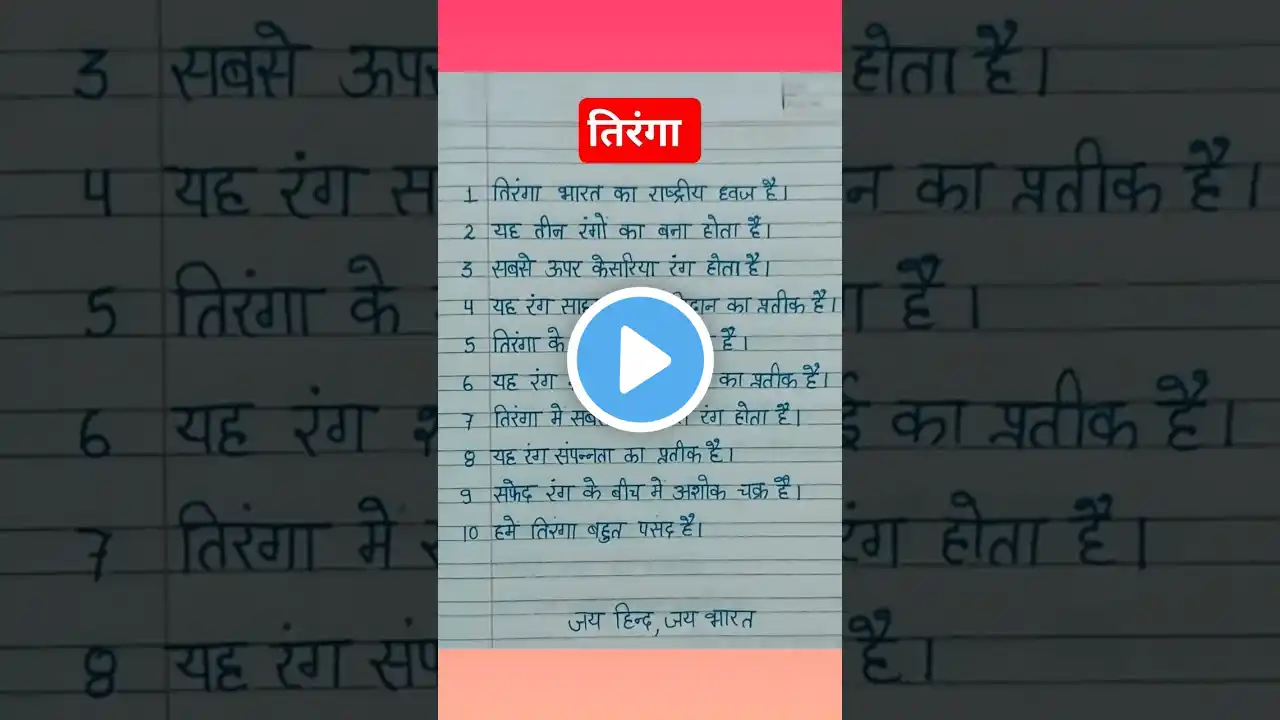 तिरंगा
1 तिरंगा भारत का राष्ट्रीय ध्वज है।
2 यह तीन रंगों का बना होता है।
3 सबसे ऊपर केसरिया रंग होता है।
4 यह रंग का प्रतीक है।
5 तिरंगा के है।
6 यह रंग का प्रतीक है।
7 तिरंगा मे रंग होता है।
8 यह रंग संपन्नता का प्रतीक है।
9 सफेद रंग के बीच मे अशोक चक्र है।
10 हमे तिरंगा बहुत पसंद है।
जय हिन्द, जय भारत